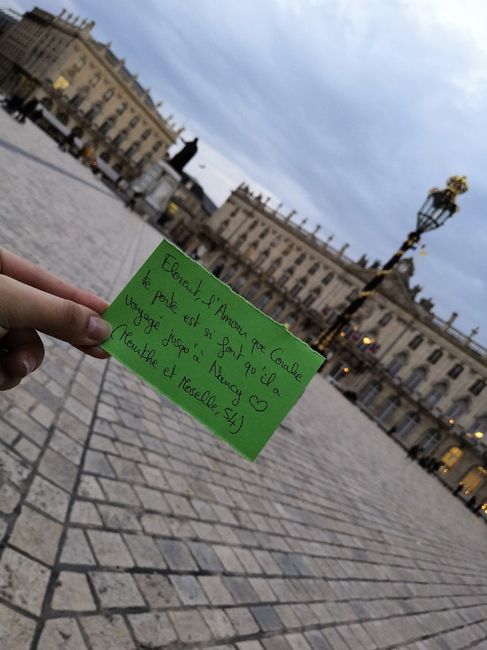 Florent, l'Amour que Coralie
te porte est si fort qu'il a
voyagé jusqu'à Nancy ♡
(Meurthe et Moselle, 54)